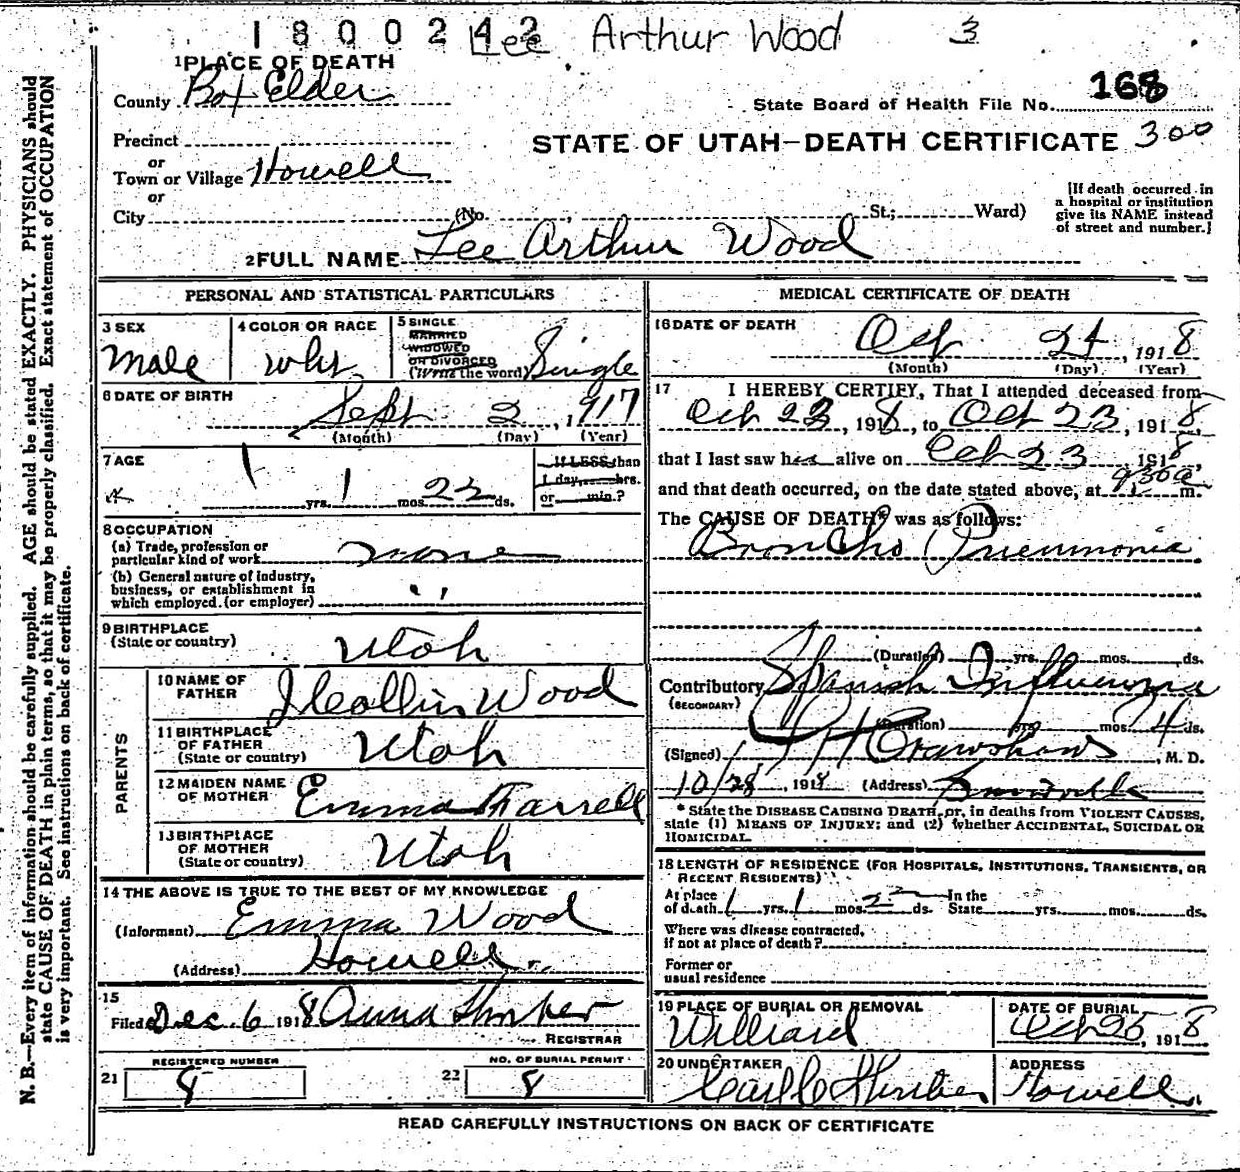 1800242 Lee Arthur Wood 3
1 PLACE OF DEATH
County Box Elder
State Board of Health File No. 168
Precinct
STATE OF UTAH—DEATH CERTIFICATE 300
or
Town or Village Howell
or
City (No. , St.; Ward)
[If death occurred in
a hospital or institution
give its NAME instead
of street and number.]
2 FULL NAME Lee Arthur Wood
PERSONAL AND STATISTICAL PARTICULARS
3 SEX
Male
4 COLOR OR RACE
wht
5 SINGLE
MARRIED
WIDOWED
OR DIVORCED
(Write the word) Single
6 DATE OF BIRTH
Sept 2, 1917
(Month) (Day) (Year)
7 AGE
1 yrs. 1 mos. 22 ds.
If LESS than
1 day, hrs.
or min.?
8 OCCUPATION
(a) Trade, profession or
particular kind of work none
(b) General nature of industry,
business, or establishment in
which employed (or employer) "
9 BIRTHPLACE
(State or country) Utah
PARENTS
10 NAME OF
FATHER J Collin Wood
11 BIRTHPLACE
OF FATHER
(State or country) Utah
12 MAIDEN NAME
OF MOTHER Emma Farrell
13 BIRTHPLACE
OF MOTHER
(State or country) Utah
14 THE ABOVE IS TRUE TO THE BEST OF MY KNOWLEDGE
(Informant) Emma Wood
(Address) Howell
15
Filed Dec. 6 1918 Anna Thorper
REGISTRAR
REGISTERED NUMBER
21 8
NO. OF BURIAL PERMIT
22 8
MEDICAL CERTIFICATE OF DEATH
16 DATE OF DEATH
Oct 24, 1918
(Month) (Day) (Year)
17 I HEREBY CERTIFY, That I attended deceased from
Oct 23, 1918, to Oct 23, 1918,
that I last saw him alive on Oct 23 1918,
and that death occurred, on the date stated above, at 930a m.
The CAUSE OF DEATH* was as follows:
Broncho Pneumonia
(Duration) yrs. mos. ds.
Contributory Spanish Influenza
(SECONDARY)
(Duration) yrs. mos. 4 ds.
(Signed) Crawshaw, M. D.
10/28, 1918 (Address)
* State the DISEASE CAUSING DEATH, or, in deaths from VIOLENT CAUSES,
state (1) MEANS OF INJURY; and (2) whether ACCIDENTAL, SUICIDAL OR
HOMICIDAL.
18 LENGTH OF RESIDENCE (FOR HOSPITALS, INSTITUTIONS, TRANSIENTS, OR
RECENT RESIDENTS)
At place
of death 1 yrs. 1 mos. 22 ds. In the
State yrs. mos. ds.
Where was disease contracted,
if not at place of death?
Former or
usual residence
19 PLACE OF BURIAL OR REMOVAL
Williard
DATE OF BURIAL
Oct 25, 1918
20 UNDERTAKER
Carl C
ADDRESS
Howell
READ CAREFULLY INSTRUCTIONS ON BACK OF CERTIFICATE
N. B.—Every item of information should be carefully supplied. AGE should be stated EXACTLY. PHYSICIANS should
state CAUSE OF DEATH in plain terms, so that it may be properly classified. Exact statement of OCCUPATION
is very important. See instructions on back of certificate.